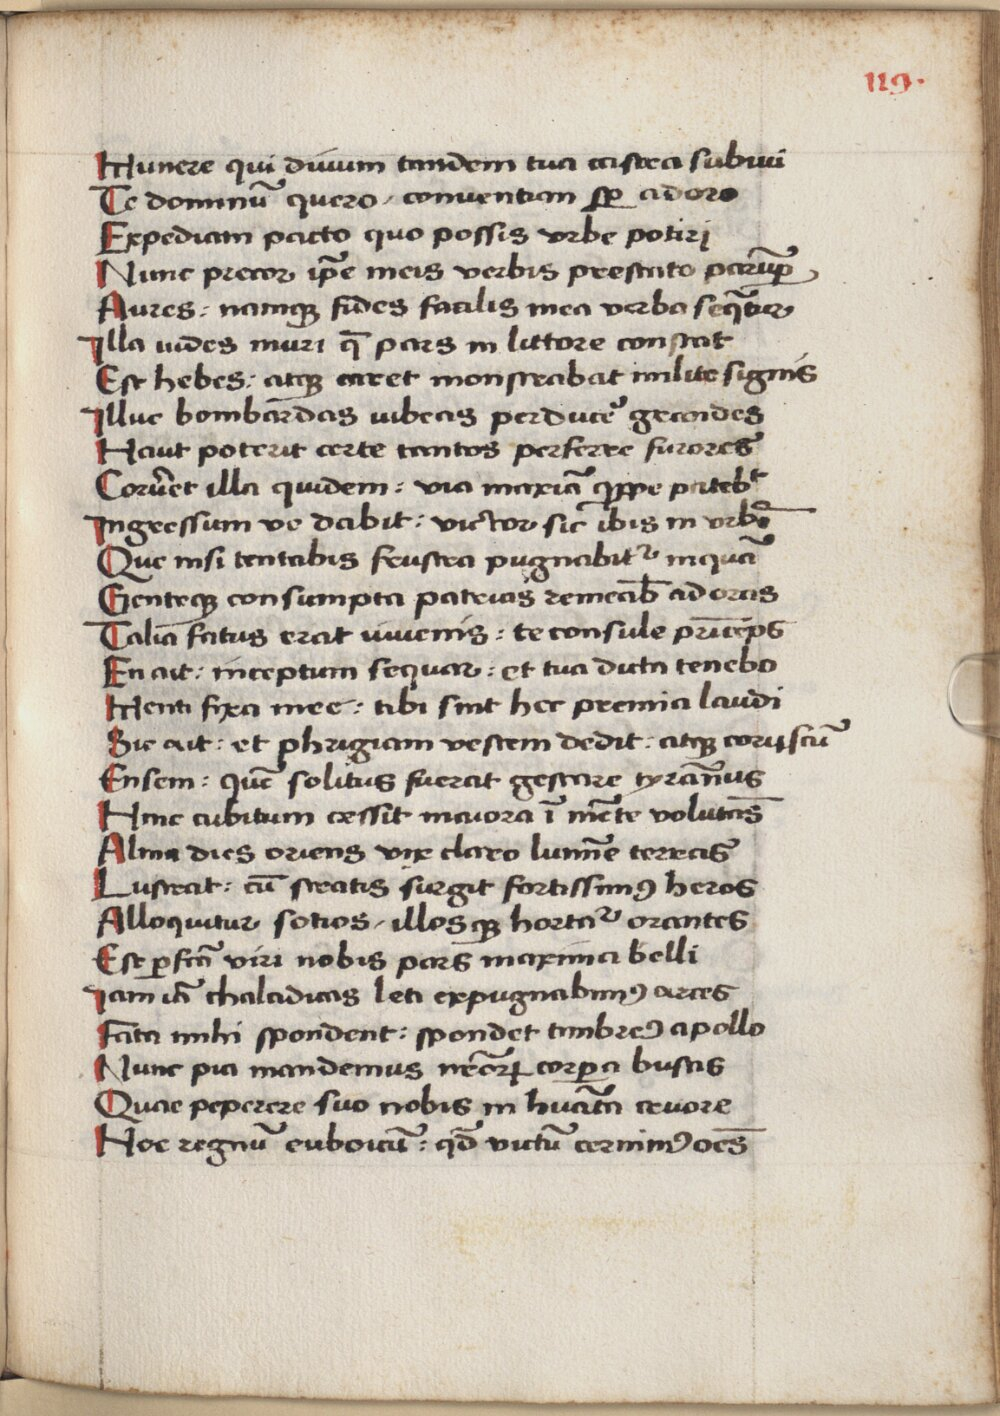 119.
Munere qui diuum tandem tua castra subiui
Te dominū quero / conuentum sꝑ adoro
Expediam pacto quo possis vrbe potiri
Nunc precor ip̄e meis verbis prestato parūꝑ
Aures: namqꝫ fides facilis mea verba seq̄tur
Illa uides muri q̄ pars in littore constat
Est hebes: atqꝫ caret monstrabat milite signis
Illuc bombardas iubeas perduce᷒ grandes
Haut poterit certe tantos perferre furores
Corūet illa quidem: via maxīa quippe patebt
Ingressum ve dabit: victor sic ibis in vrbē
Que nisi tentabis frustra pugnabitᷣ inquā
Genteqꝫ consumpta patrias remeab̄ ad oras
Talia fatus erat iuuenis: te consule prīceps
En ait: inceptum sequar: et tua dicta tenebo
Menti fixa mee: tibi sint hec premia laudi
Sic ait: et phrigiam vestem dedit: atqꝫ coruscū
Ensem: quē solitus fuerat gestare tyrānus
Hinc cubitum cessit maiora ī mēte volutās
Alma dies oriens vix claro lumīe terras
Lustrat: cū stratis surgit fortissimꝰ heros
Alloquitur sotios / illosqꝫ hortaᷣ orantes
Est ꝑfcā viri nobis pars maxima belli
Iam iā chalcidicas leti expugnabimꝰ arces
Fata mihi spondent: spondet timbreꝰ apollo
Nunc pia mandemus nr̄oꝝ corꝑa bustis
Quae peperere suo nobis in hucītā cruore
Hoc regnū euboicū: qd̄ victū cernimꝰ oēs